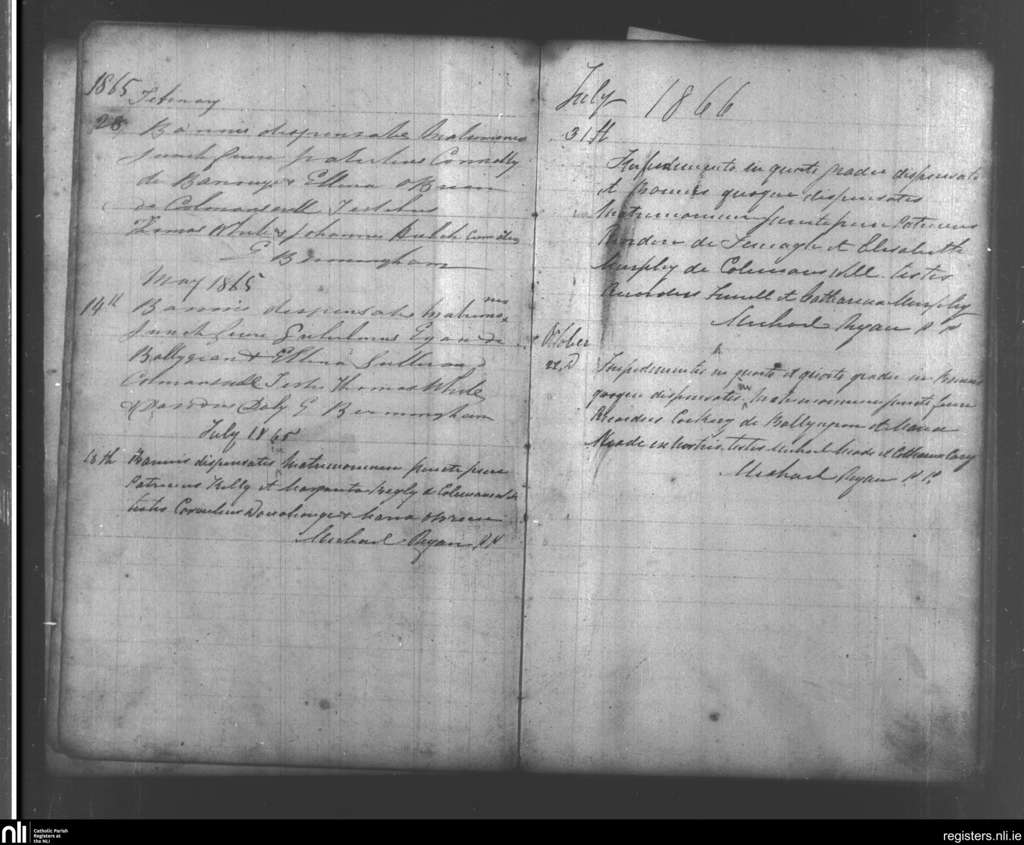 1865
Febuary
28 Bannis dispensatis Matrimoniu
junch fuere patritius Connolly
de & Ellena oBrien
de Colmanswell Testibus
Thomas White & Johanna
G Birmingham
May 1865
14th Bannis dispensatis Matrimo niu
junch fuere Gulielmus Egan de
Ballygran & Ellena Sullivan
Colmanswell Testes Thomas White
& Daly G Bermingham
July 1865
18th Bannis dispensatis Matrimonium juncte fuere
Patricius Kelly et Margarita Begly de Colemanswell
testes Cornelius Donohonge & hana obrien
Michael Ryan P.P
July 1866
31st
Impedimento in quarto gradu dispensato
et Bannis quoque dispensatis
Matrimonium juncte fuere Patricius
de et Elisabeth
Murphy de Colemanswell testes
et Catharina Murphy
Michael Ryan P P
October
22d Impedimentis in quarto et quarto gradu in Bannis
quoque dispensatis Matrimonium juncte fuere
de Ballyagran et Maria
Meade testes Michael Meade et Catharina Cary
Michael Ryan P.P.
nli
Catholic Parish
Registers at
the NLI
registers.nli.ie